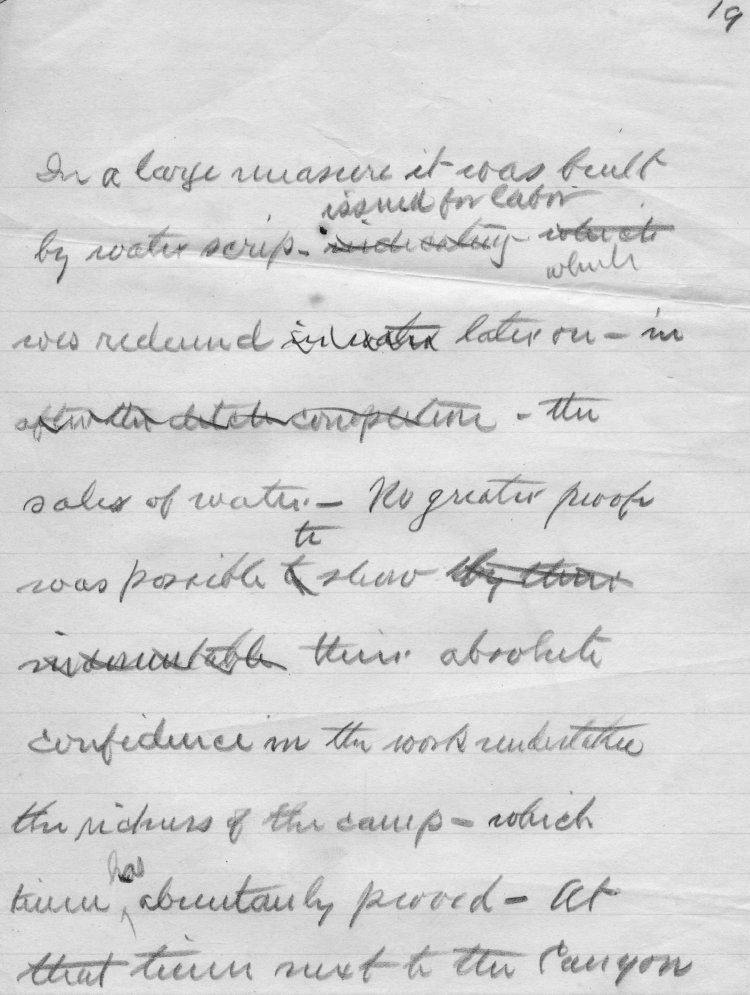 19
In a large measure it was built
issued for labor
by water scrip - indicating - which
which
was redeemed in water later on - in
after the ditch completion - the
sales of water - No greater proof
to
was possible to show by their
indomitable their absolute
confidence in the work undertaken
the richness of the camp - which
has
time abuntantly proved - At
that time next to the Canyon